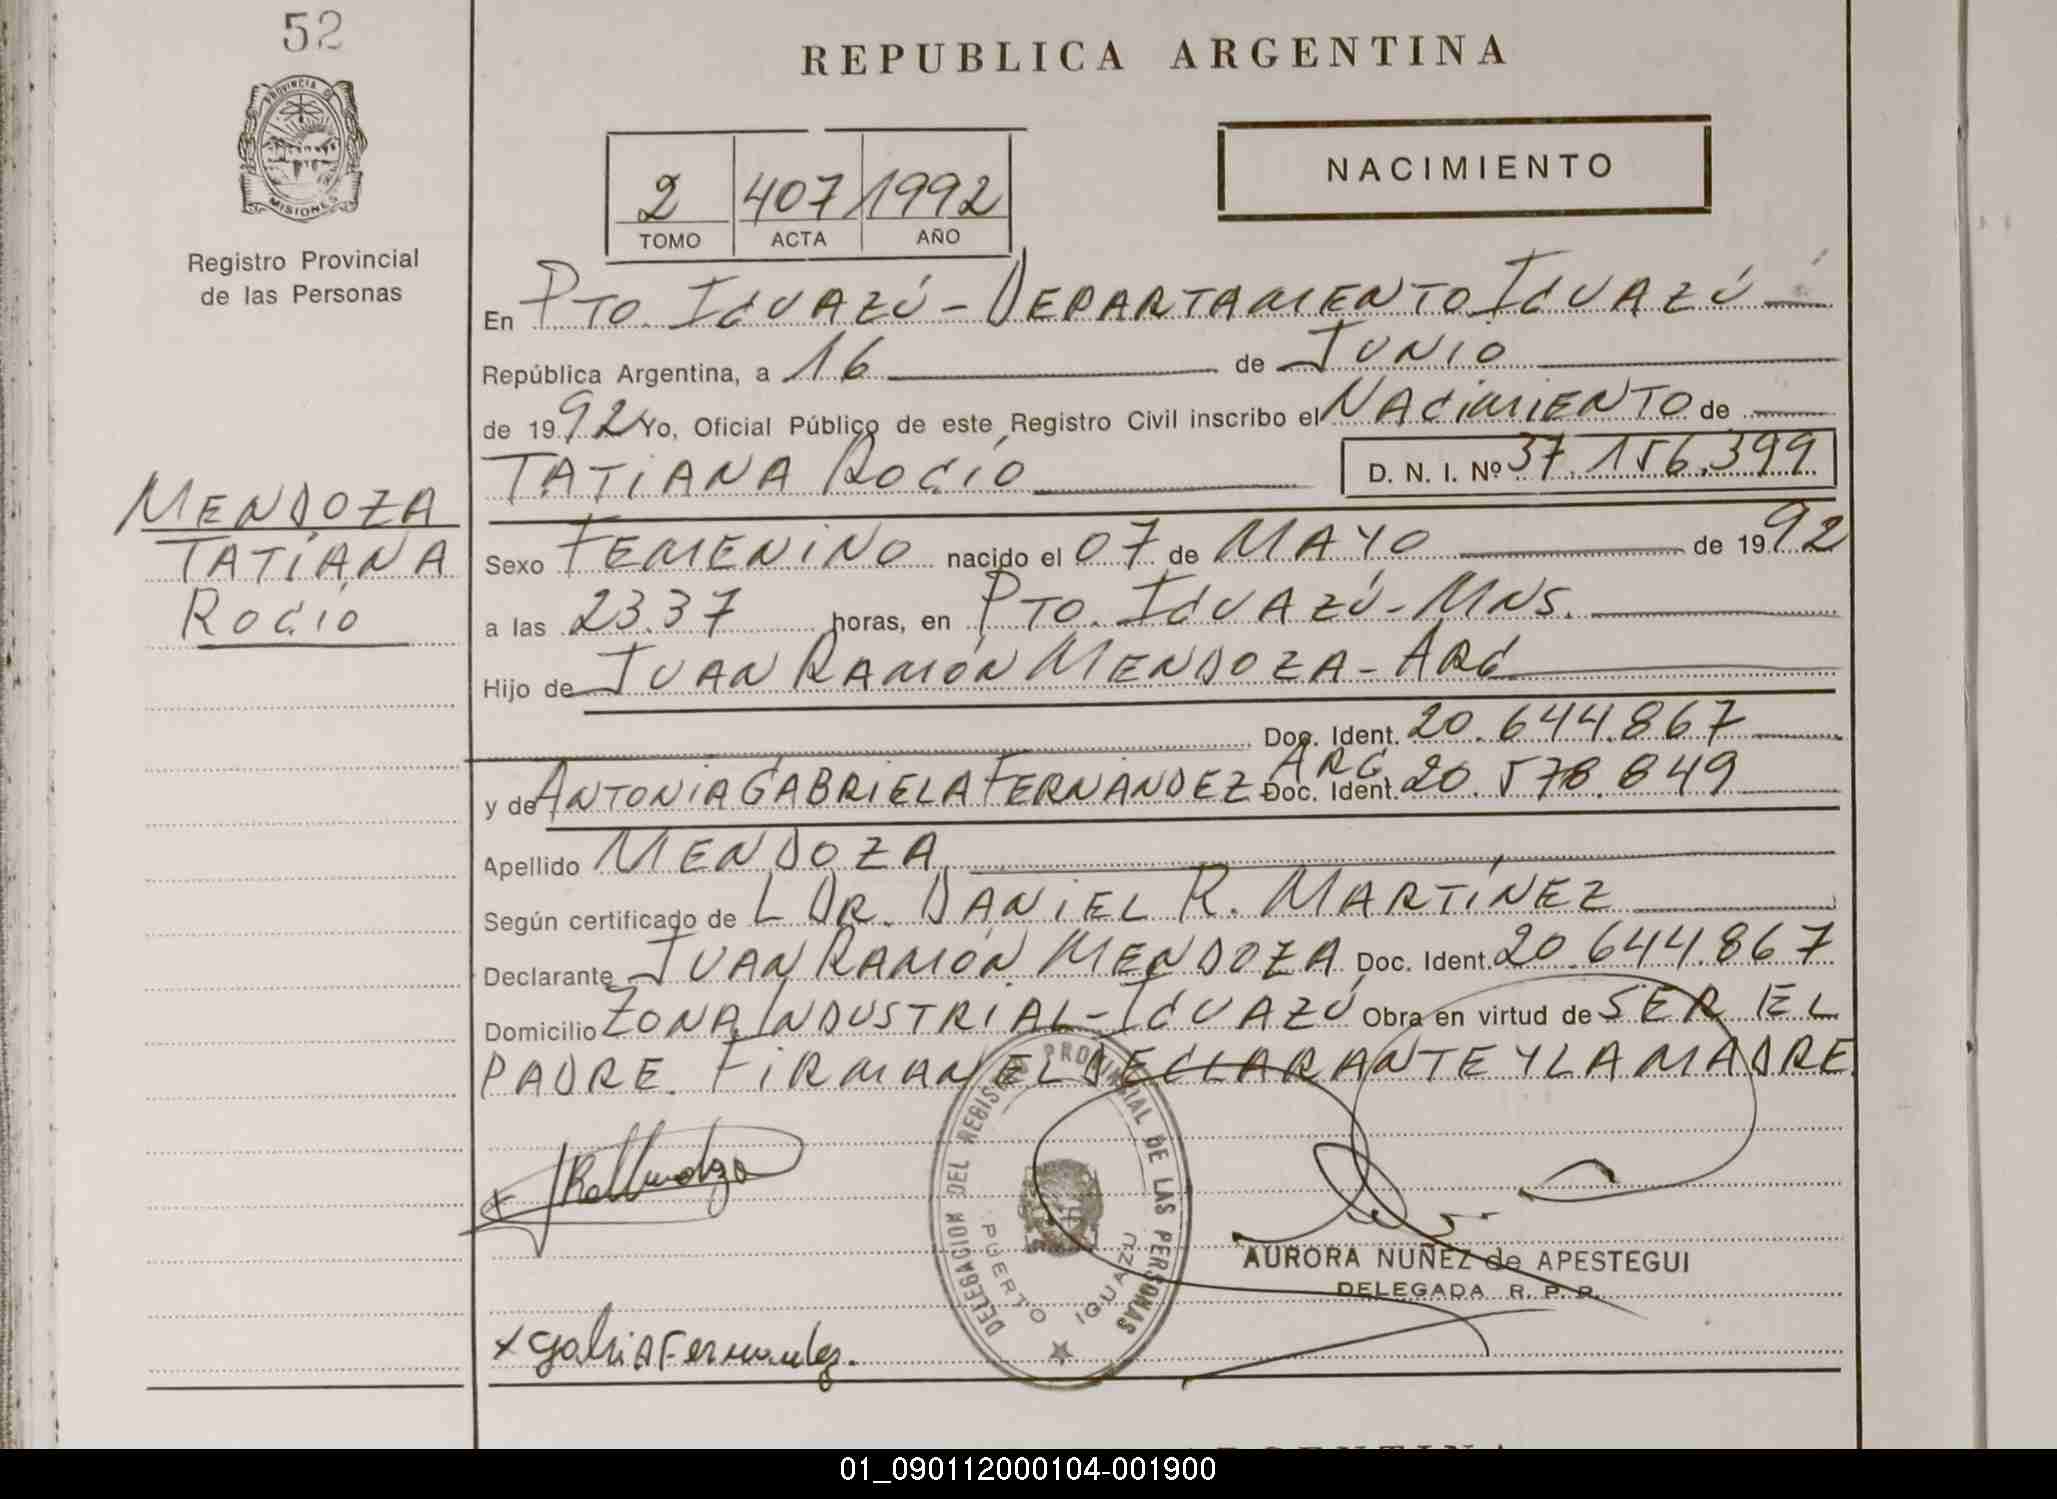 52
REPUBLICA ARGENTINA
PROVINCIA DE
MISIONES
Registro Provincial
de las Personas
2 407 1992
TOMO ACTA AÑO
NACIMIENTO
En PTO. IGUAZÚ - DEPARTAMENTO IGUAZÚ
República Argentina, a 16 de JUNIO
de 1992 Yo, Oficial Público de este Registro Civil inscribo el NACIMIENTO de
TATIANA ROCÍO D. N. I. Nº 37.156.399
MENDOZA
TATIANA
ROCÍO
Sexo FEMENINO nacido el 07 de MAYO de 1992
a las 23.37 horas, en PTO. IGUAZÚ - MNS.
Hijo de JUAN RAMÓN MENDOZA - ARG
Doc. Ident. 20.644.867
y de ANTONIA GABRIELA FERNÁNDEZ ARG Doc. Ident. 20.578.849
Apellido MENDOZA
Según certificado de L DR. DANIEL R. MARTÍNEZ
Declarante JUAN RAMÓN MENDOZA Doc. Ident. 20.644.867
Domicilio ZONA INDUSTRIAL - IGUAZÚ Obra en virtud de SER EL
PADRE. FIRMAN EL DECLARANTE Y LA MADRE.
DELEGACION DEL REGISTRO PROVINCIAL DE LAS PERSONAS
PUERTO IGUAZU
AURORA NUÑEZ de APESTEGUI
DELEGADA R. P. P.
ARGENTINA
01_090112000104-001900